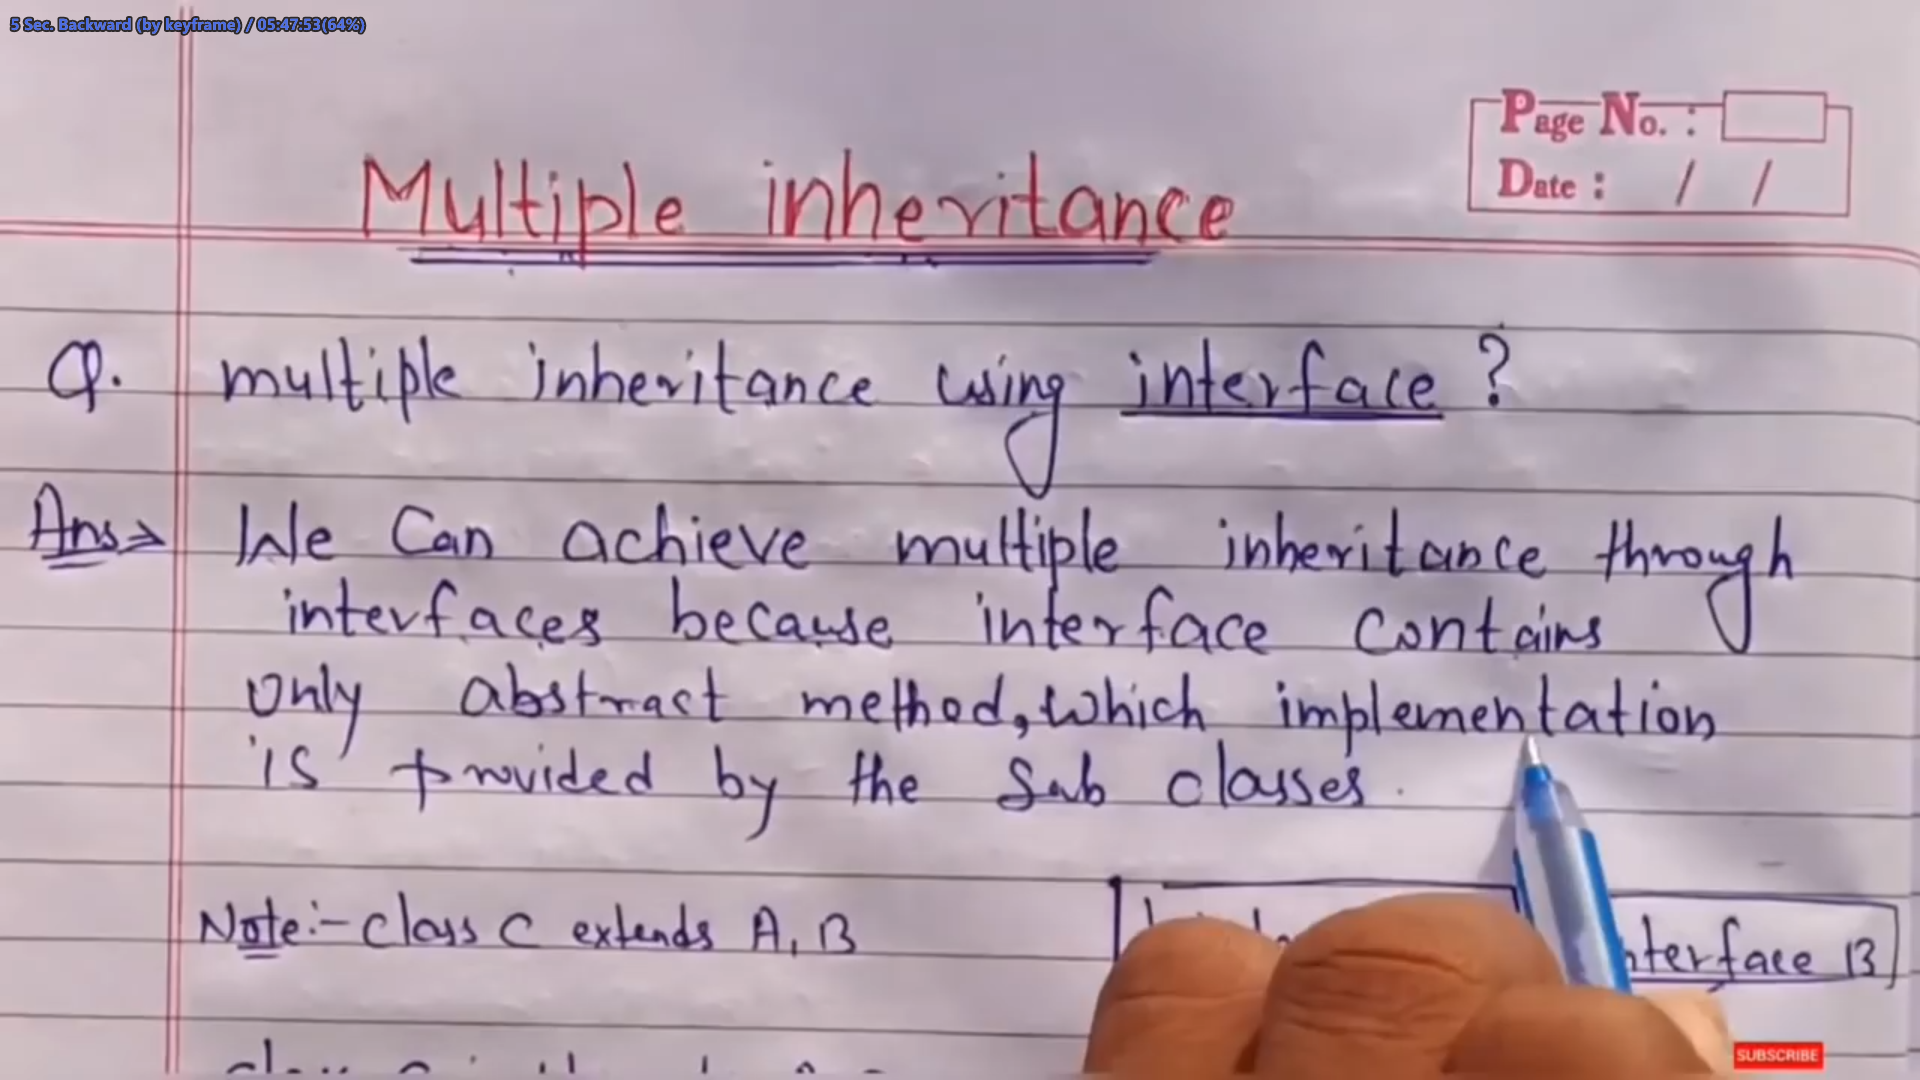 5 Sec. Backward (by keyframe) / 05:47:53(64%)
Page No. :
Date : / /
Multiple inheritance
Q. multiple inheritance using interface ?
Ans⇒ We Can achieve multiple inheritance through
interfaces because interface contains
only abstract method, which implementation
is provided by the Sub classes.
Note:- class C extends A, B
nterface B
SUBSCRIBE